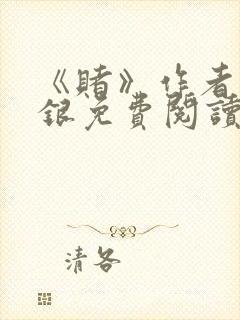 《賭》作者
銀免費閱讀
清各